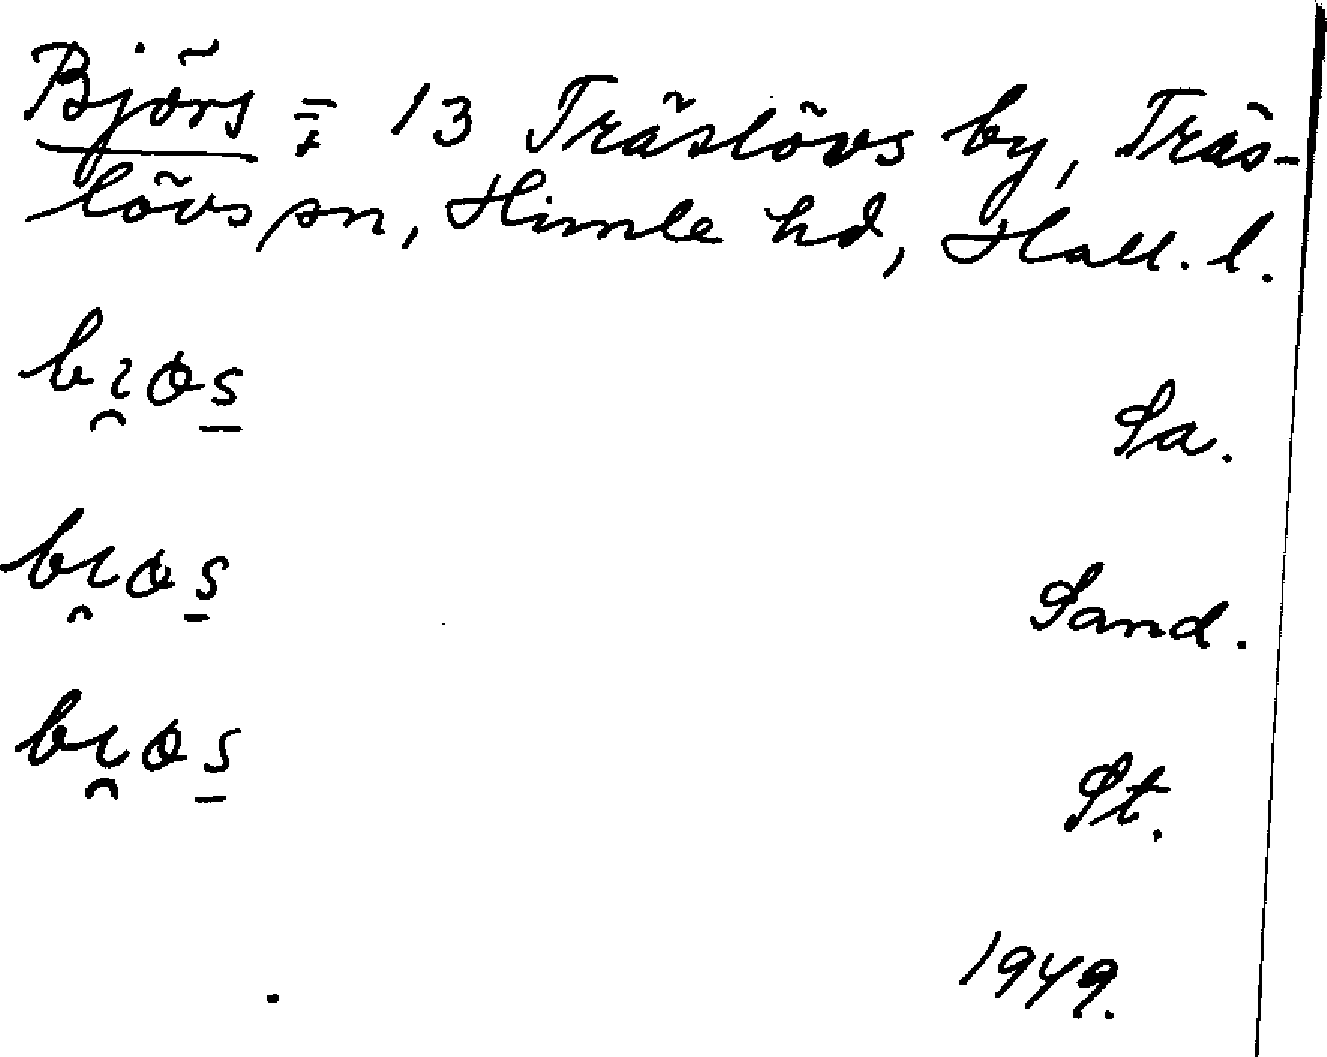 Björs ∓ 13 Träslövs by, Träs-
lövs sn, Himle hd, Hall. l.
bı̯ɵs̠
Sa.
bı̯ɵs̠
Sand.
bı̯ɵs̠
St.
1949.